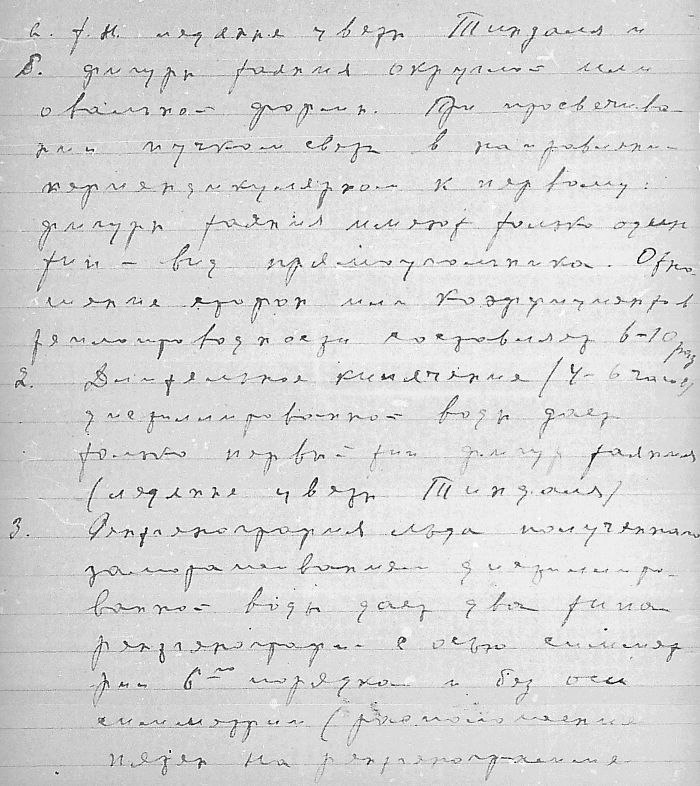 а. т.н. ледяные цветы Тиндаля и
б. фигуры таяния округлой или
овальной формы. При просвечива-
нии пучком света в направлении
перпендикулярном к первому:
фигуры таяния имеют только один
тип – вид прямоугольника. Отно-
шение сторон или коэффициентов
теплопроводности составляет 6–10 раз
2. Длительное кипячение (4–6 часов)
дистиллированной воды дает
только первый тип фигур таяния
(ледяные цветы Тиндаля)
3. Рентгенография льда полученного
замораживанием дистиллиро-
ванной воды дает два типа
рентгенограмм с осью симмет-
рии 6го порядка и без оси
симметрии (расположение
пятен на рентгенограмме